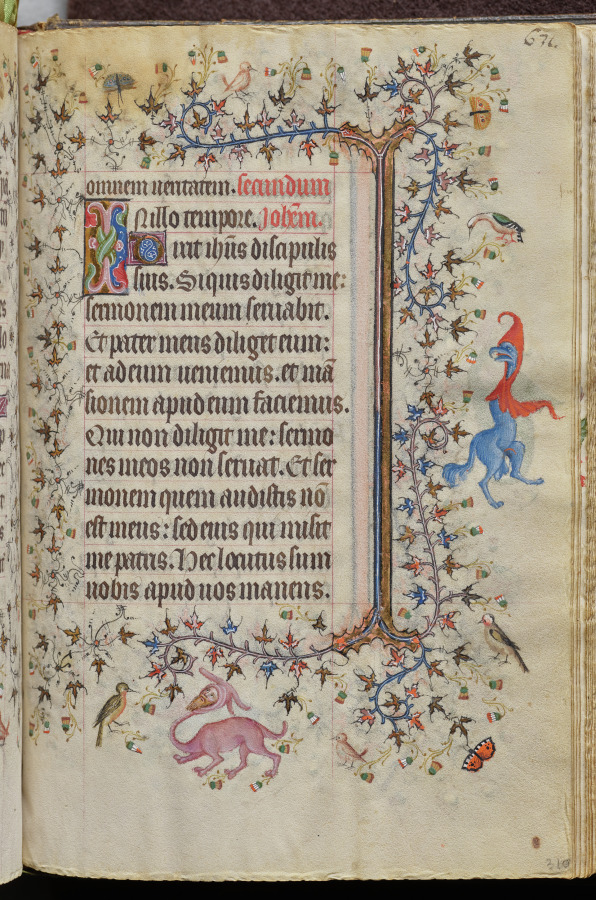 671.
omnem ueritatem. secundum
In illo tempore. Johem.
Dixit ihus discipulis
suis. Siquis diligit me:
sermonem meum seruabit.
Et pater meus diliget eum:
et ad eum ueniemus. et mā
sionem apud eum faciemus.
Qui non diligit me: sermo
nes meos non seruat. Et ser
monem quem audistis nō
est meus: sed eius qui misit
me patris. Hec locutus sum
uobis apud uos manens.